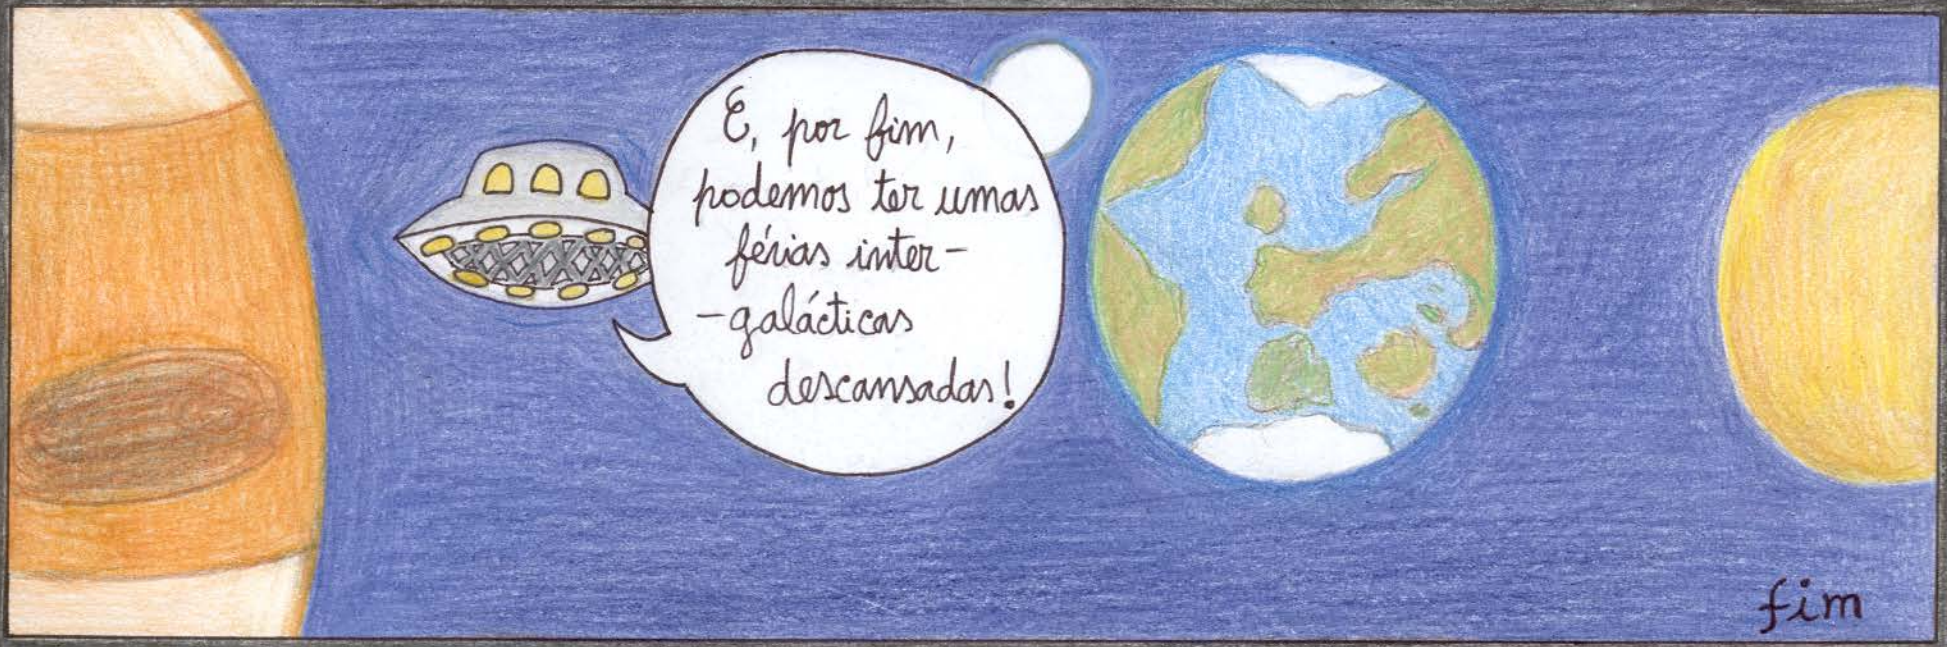 E, por fim,
podemos ter umas
férias inter-
-galácticas
descansadas!
fim